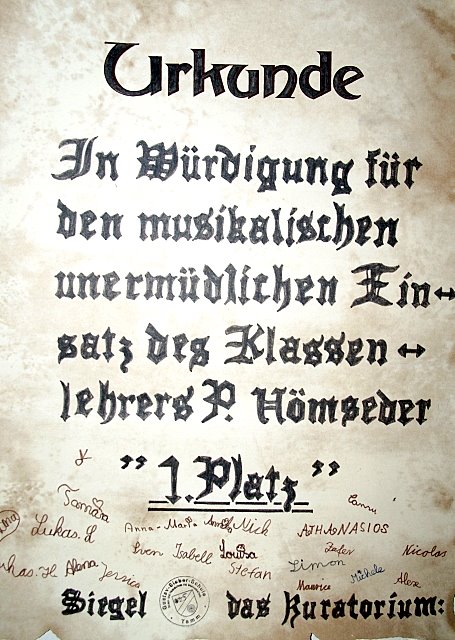 Urkunde
In Würdigung für
den musikalischen
unermüdlichen Ein↔
satz des Klassen ↔
lehrers P. Hömseder
"1. Platz"
Tamara
Lukas. L Anna-Maria Nick ATHANASIOS
Sven Isabell Louisa Peter Nicolas
Lukas. H Alena Jessica Stefan Simon
Maurice Michele Alex
Siegel das Kuratorium:
Gustav-Sieber-Schule
Tamm